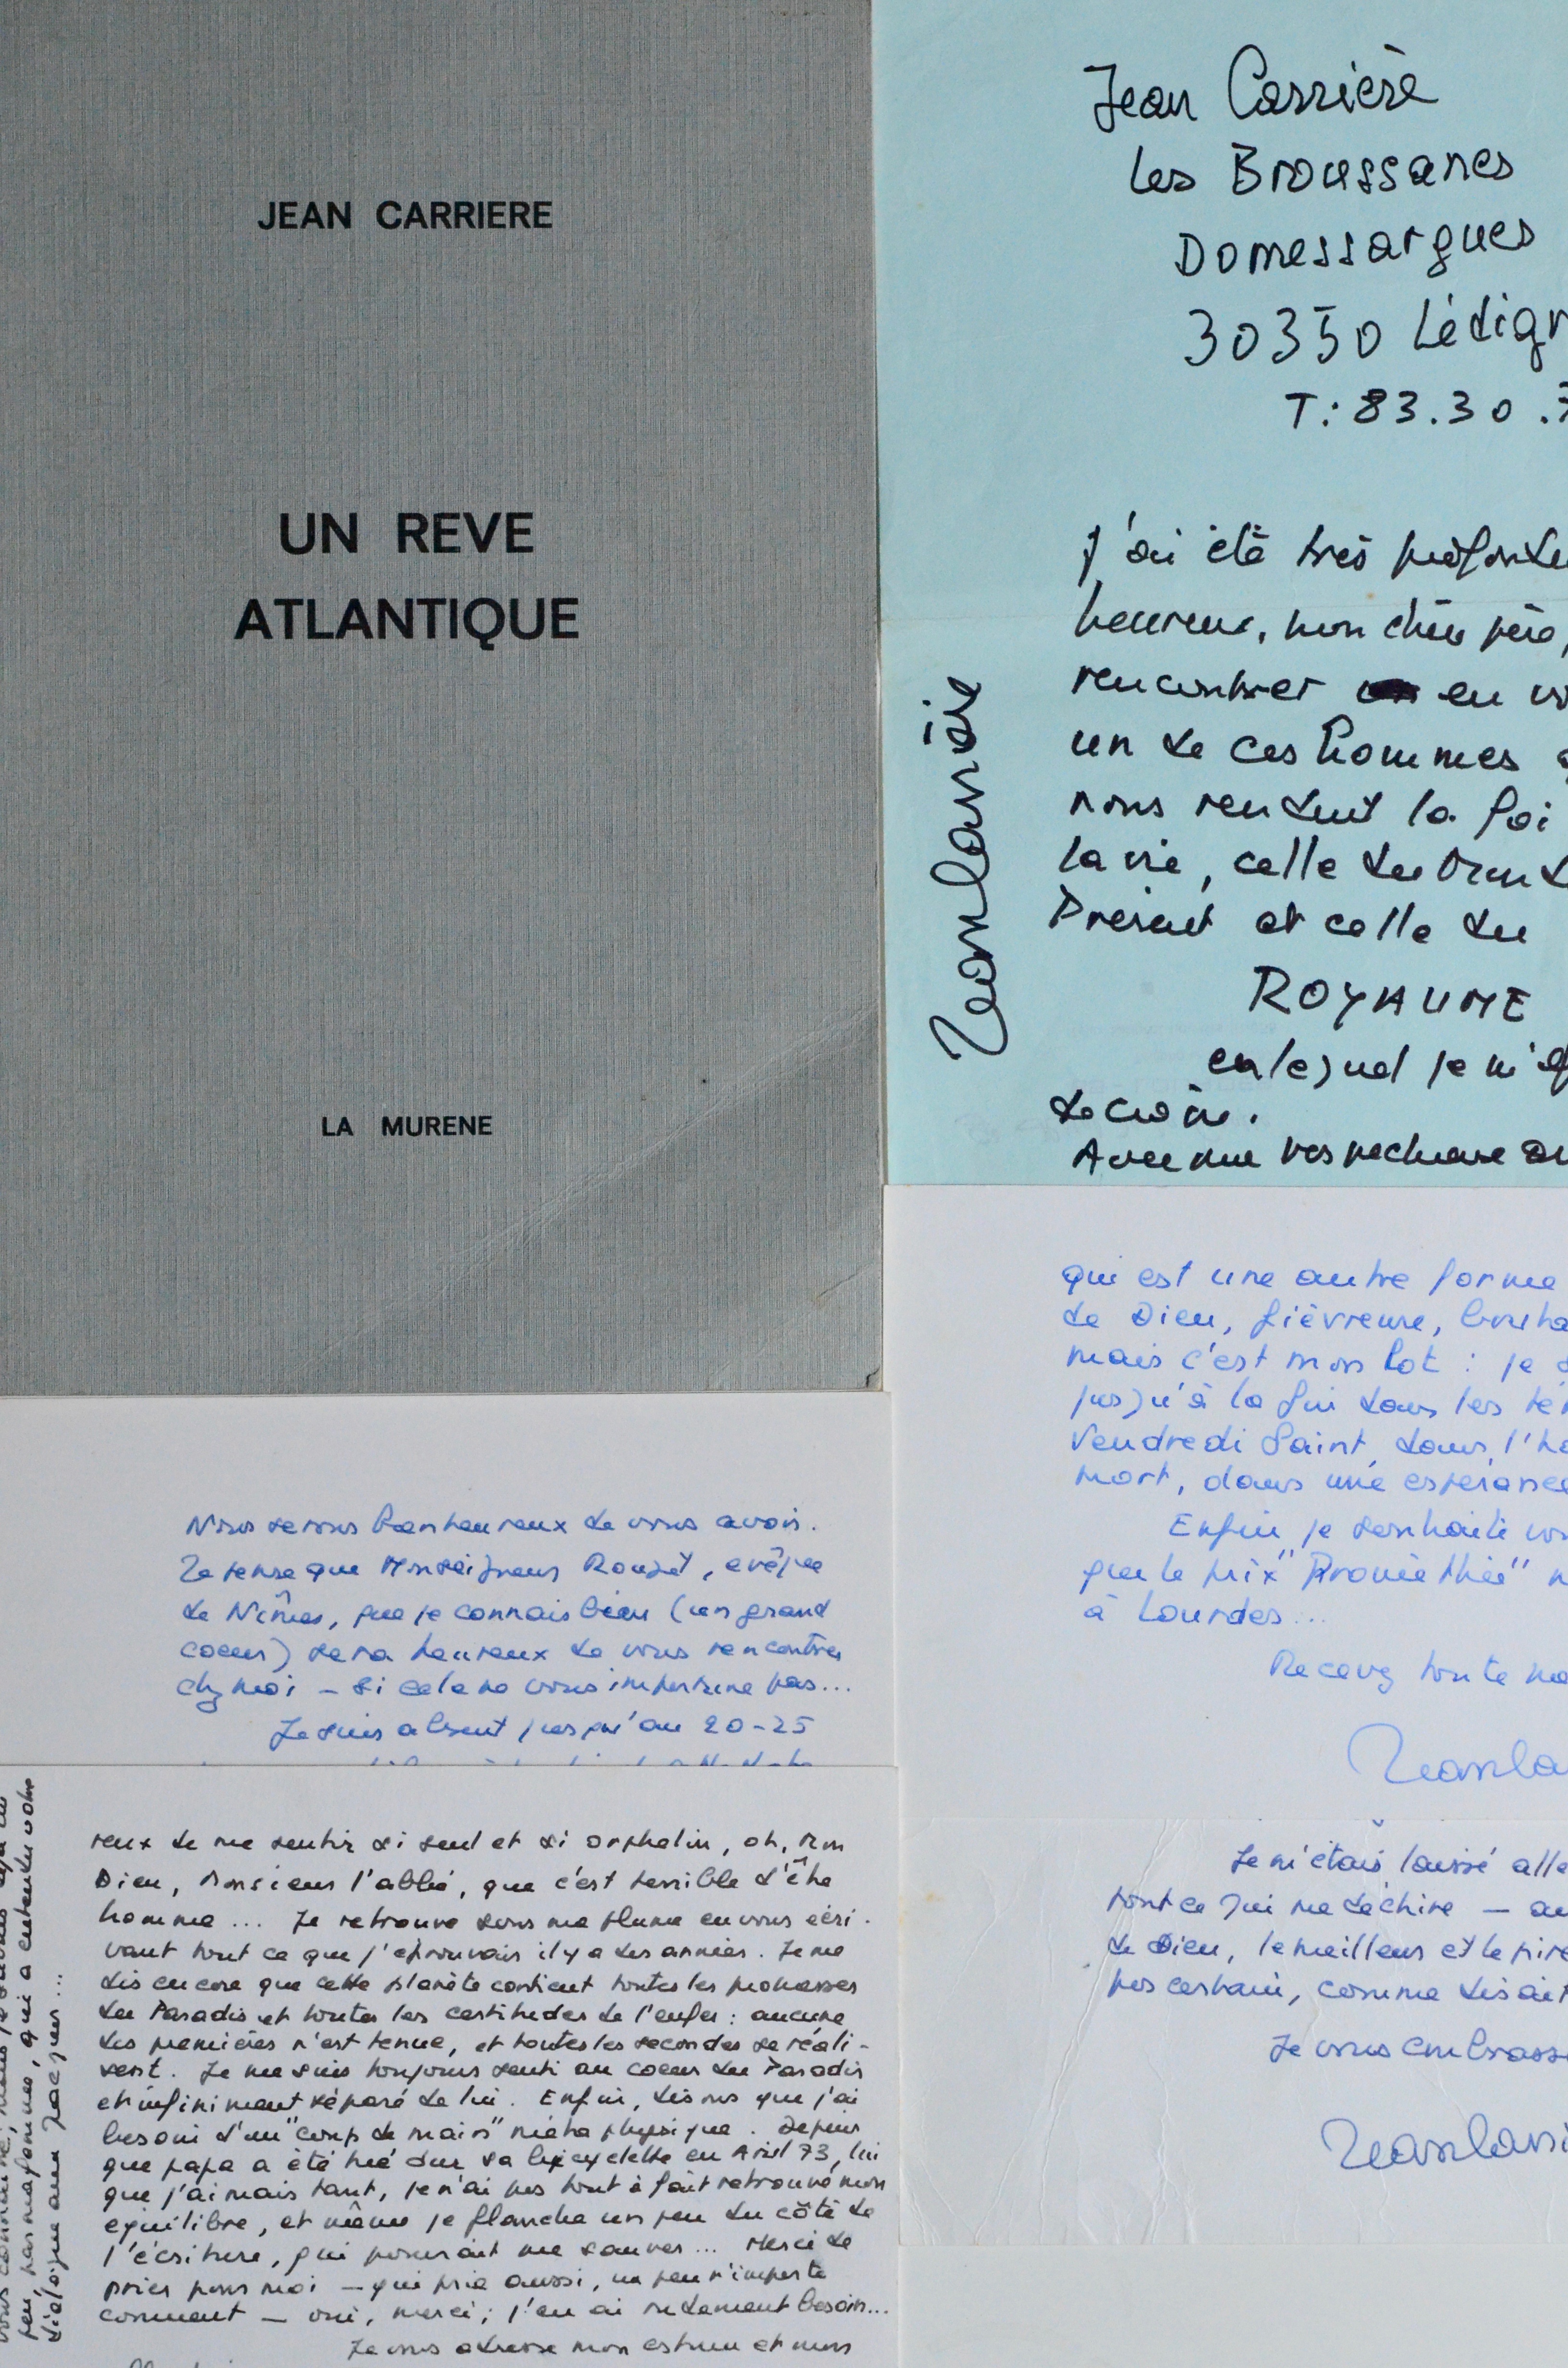 JEAN CARRIERE
UN REVE
ATLANTIQUE
LA MURENE
Jean Carrière
les Broussanes
Domessargues
30350 Lédign
T.: 83.30.7
J'ai été très profonde
heureux, mon cher père,
rencontrer en vo
un de ces hommes q
nous rendent la foi
la vie, celle du Monde
Présent et celle du
ROYAUME
en lequel je m'ef
de croire.
Avec ma respectueuse
qui est une autre forme
de Dieu, fiévreuse,
mais c'est mon lot : je
jusqu'à la fin dans les té
Vendredi Saint, dans l'ho
mort, dans une espérance
Enfin, je souhaite vo
que le prix "Prométhée" n
à Lourdes...
Recevez toute ma
Nous serons bien heureux de vous avoir.
Je pense que Monseigneur Rouzet, évêque
de Nîmes, que je connais bien (un grand
coeur) sera heureux de vous rencontrer
chez moi – si cela ne vous importune pas...
Je suis absent jusqu'au 20-25
reux de me sentir si seul et si orphelin, oh, mon
Dieu, Monsieur l'abbé, que c'est terrible d'être
homme... Je retrouve sous ma plume en vous écri-
vant tout ce que j'éprouvais il y a des années. Je me
dis encore que cette planète contient toutes les promesses
du Paradis et toutes les certitudes de l'enfer : aucune
des premières n'est tenue, et toutes les secondes se réali-
sent. Je me suis toujours senti au coeur du Paradis
et infiniment séparé de lui. Enfin, disons que j'ai
besoin d'un "coup de main" métaphysique. Depuis
que papa a été tué sur sa bicyclette en Avril 73, lui
que j'aimais tant, je n'ai pas tout à fait retrouvé mon
équilibre, et même je flanche un peu du côté de
l'écriture, qui pourrait me sauver... Merci de
prier pour moi – qui prie aussi, un peu n'importe
comment – oui, merci ; j'en ai rudement besoin...
Je vous adresse mon estime et mon
Je m'étais laissé alle
tout ce qui me déchire – au
de Dieu, le meilleur et le pire
pas certain, comme disait
Je vous embrasse